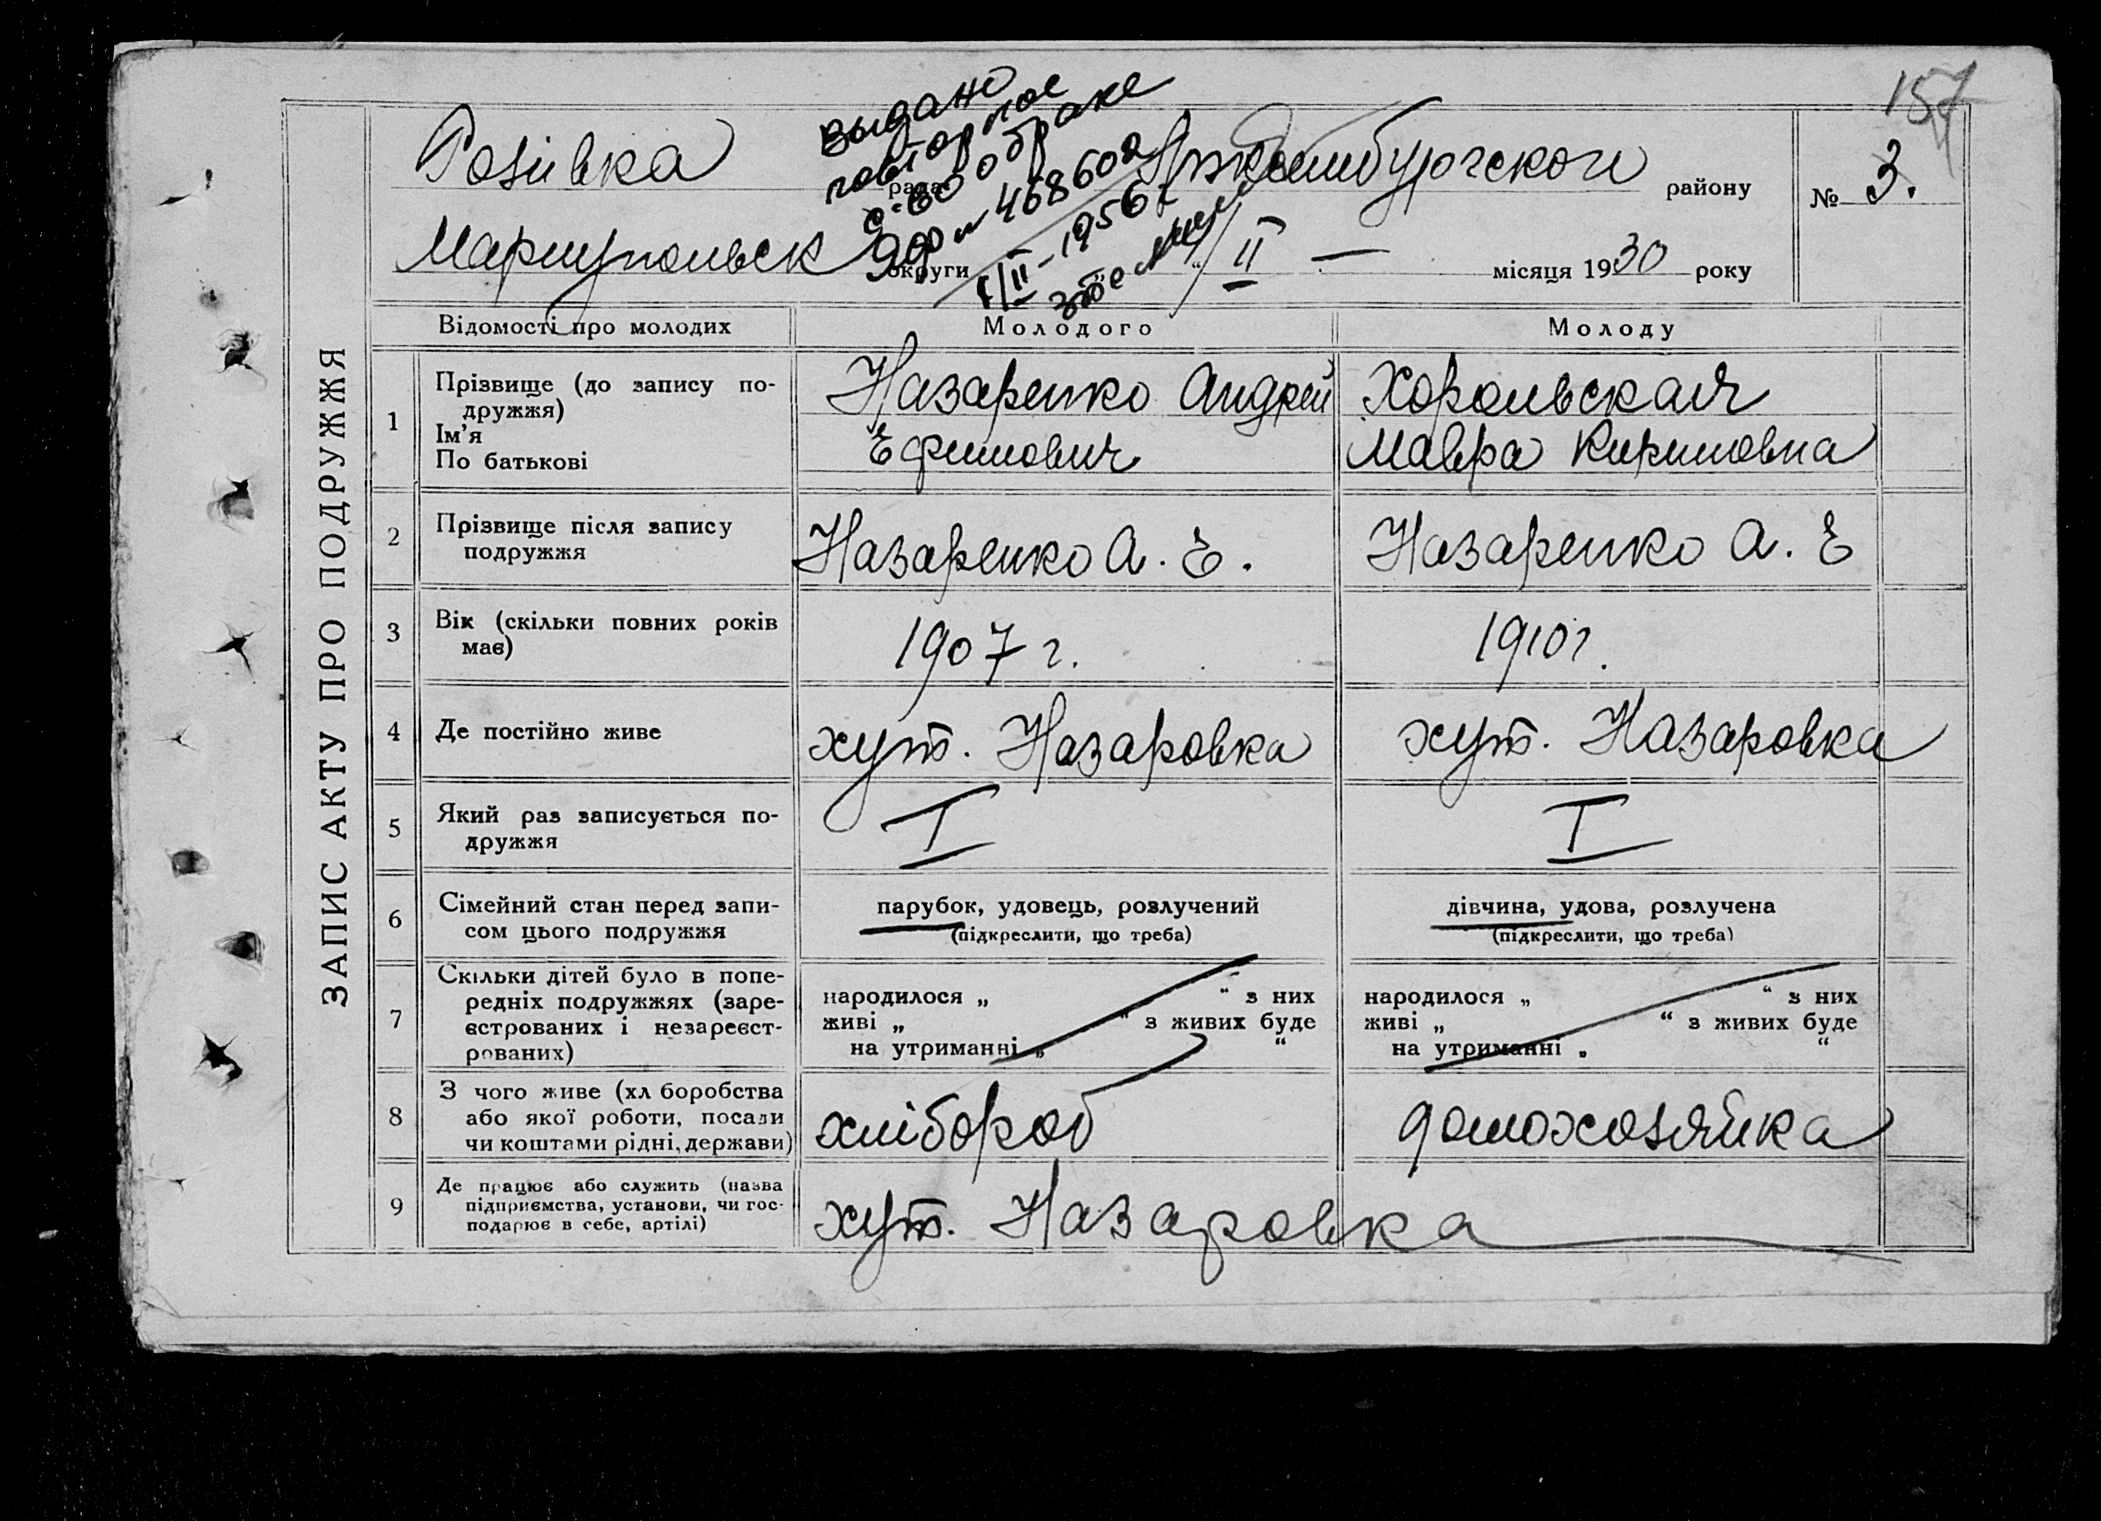 157
Розівка рада района району № 3.
Мариупольск округи " " II — місяця 1930 року
выдано
повторное
с-во о браке
468602
1/II-1956 г
ЗАПИС АКТУ ПРО ПОДРУЖЖЯ
Відомості про молодих Молодого Молоду
1 Прізвище (до запису по-
дружжя)
Ім'я
По батькові
Назаренко Андрей
Ефимович
Хорольская
Мавра Кириловна
2 Прізвище після запису
подружжя
Назаренко А. Е.
Назаренко А. Е
3 Вік (скільки повних років
має)
1907 г.
1910 г.
4 Де постійно живе
хут. Назаровка
хут. Назаровка
5 Який раз записується по-
дружжя
I
I
6 Сімейний стан перед запи-
сом цього подружжя
парубок, удовець, розлучений
(підкреслити, що треба)
дівчина, удова, розлучена
(підкреслити, що треба)
7 Скільки дітей було в попе-
редніх подружжях (заре-
єстрованих і незареєст-
рованих)
народилося „ “ з них
живі „ “ з живих буде
на утриманні „ “
народилося „ “ з них
живі „ “ з живих буде
на утриманні „ “
8 З чого живе (хл боробства
або якої роботи, посади
чи коштами рідні, держави)
хлібороб
домохозяйка
9 Де працює або служить (назва
підприємства, установи, чи гос-
подарює в себе, артілі)
хут. Назаровка